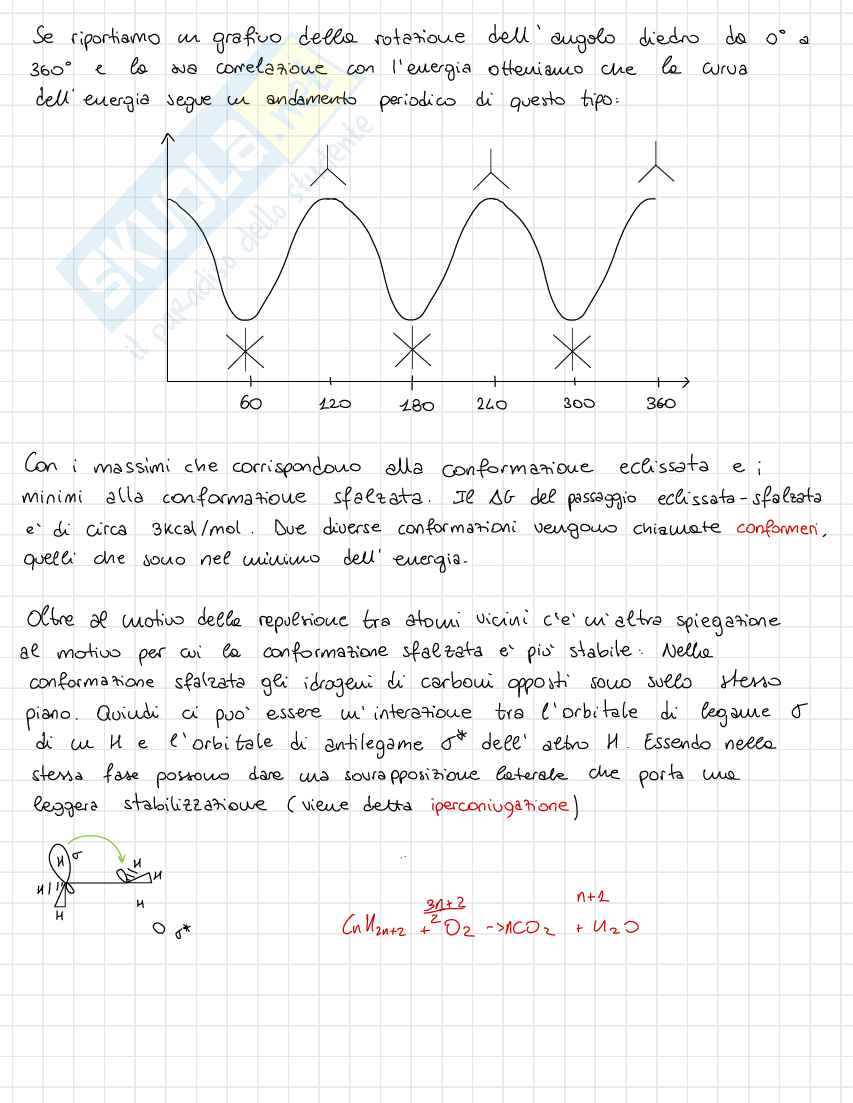 Se riportiamo un grafico della rotazione dell'angolo diedro da 0° a
360° e la sua correlazione con l'energia otteniamo che la curva
dell'energia segue un andamento periodico di questo tipo:
SKUOLA.net
il paradiso dello studente
60 120 180 240 300 360
Con i massimi che corrispondono alla conformazione eclissata e i
minimi alla conformazione sfalzata. Il ΔG del passaggio eclissata-sfalzata
e' di circa 3Kcal/mol. Due diverse conformazioni vengono chiamate conformeri,
quelli che sono nel minimo dell'energia.
Oltre al motivo della repulsione tra atomi vicini c'e' un'altra spiegazione
al motivo per cui la conformazione sfalzata e' piu' stabile. Nella
conformazione sfalzata gli idrogeni di carboni opposti sono sullo stesso
piano. Quindi ci puo' essere un'interazione tra l'orbitale di legame σ
di un H e l'orbitale di antilegame σ* dell'altro H. Essendo nella
stessa fase possono dare una sovrapposizione laterale che porta una
leggera stabilizzazione (viene detta iperconiugazione)
H σ H H
H H H
σ*
CnH2n+2 + 3n+2/2 O2 -> nCO2 + n+1 H2O